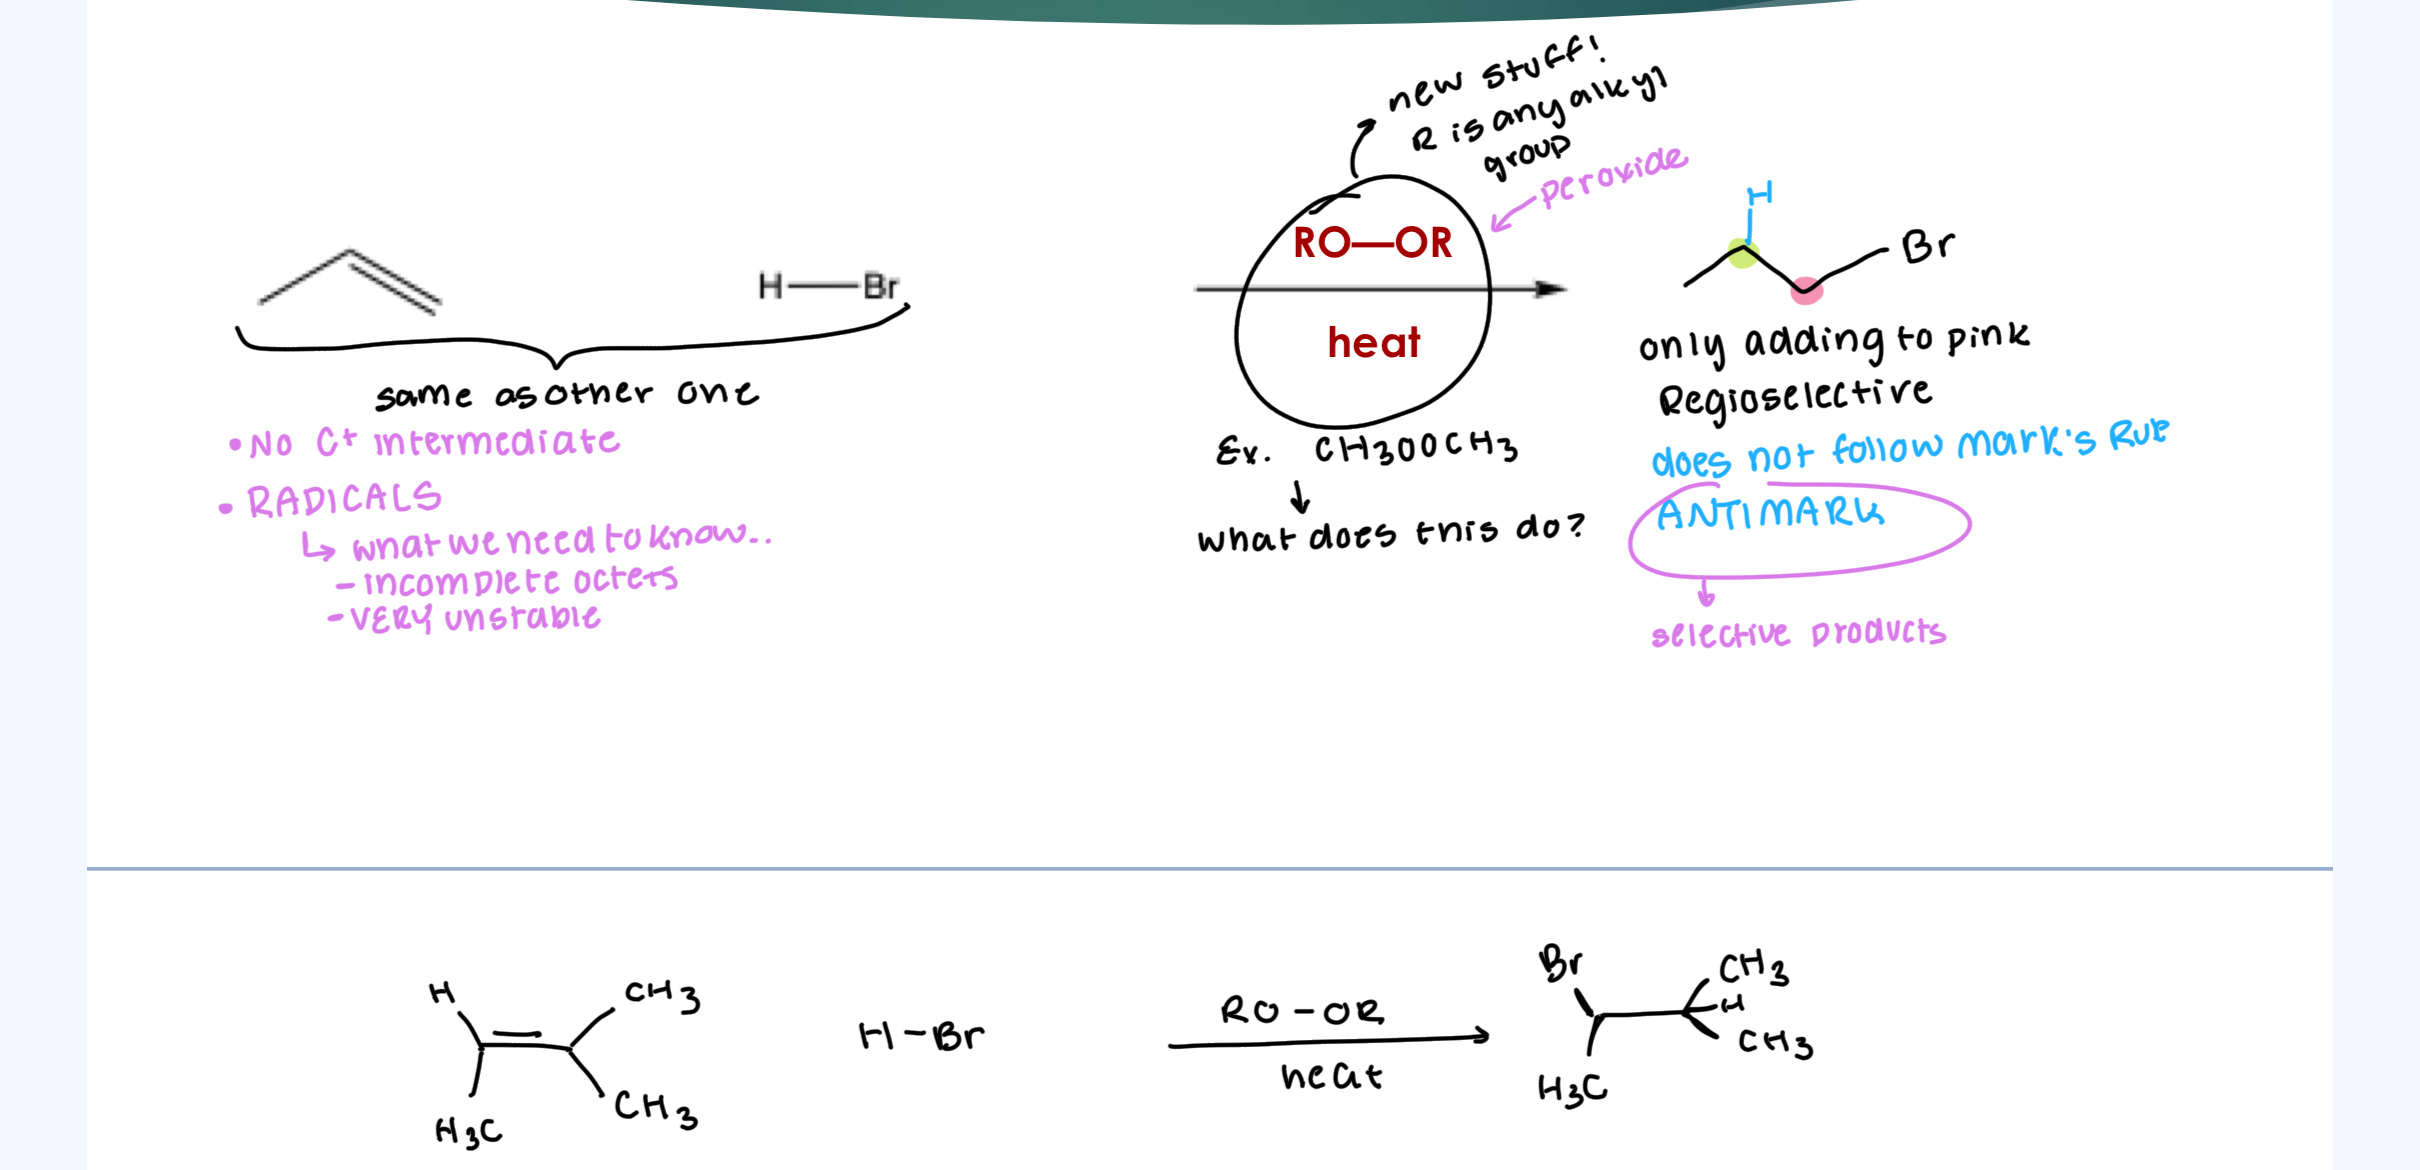 new stuff!
R is any alkyl
group
peroxide
H
RO—OR
Br
H—Br
heat
only adding to pink
same as other one
Regioselective
• No C+ intermediate
Ex. CH3OOCH3
does not follow mark's Rule
• RADICALS
ANTIMARK
↳ what we need to know..
what does this do?
- incomplete octets
- VERY unstable
selective products
Br
CH3
H
CH3
RO-OR
H
H-Br
CH3
heat
H3C
CH3
H3C